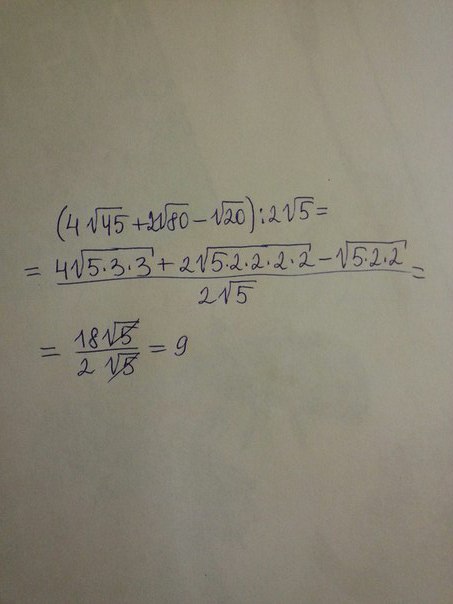 (4√45 + 2√80 − √20) : 2√5 =
= (4√(5·3·3) + 2√(5·2·2·2·2) − √(5·2·2)) / (2√5) =
= 18√5 / 2√5 = 9